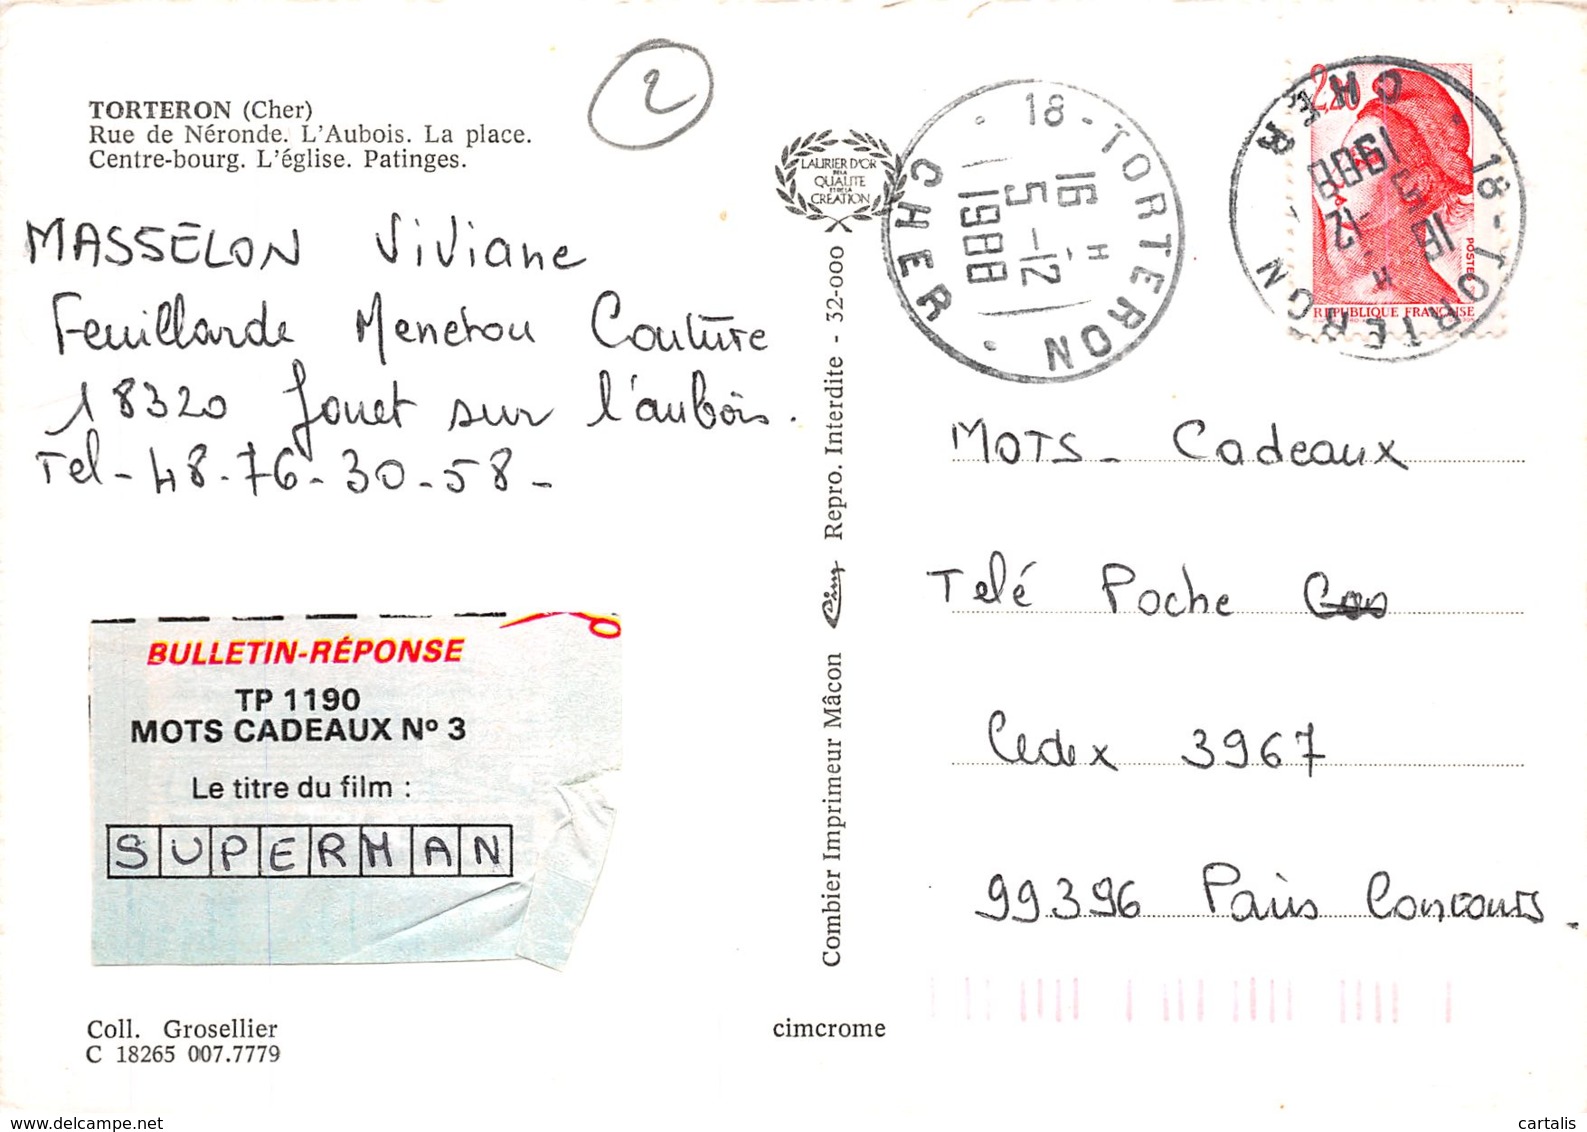 TORTERON (Cher)
Rue de Néronde. L'Aubois. La place.
Centre-bourg. L'église. Patinges.
2
MASSELON Viviane
Feuillarde Menetou Couture
18320 Jouet sur l'aubois.
Tel - 48-76-30-58-
BULLETIN-RÉPONSE
TP 1190
MOTS CADEAUX Nº 3
Le titre du film :
SUPERMAN
Coll. Grosellier
C 18265 007.7779
LAURIER D'OR
DE LA
QUALITE
ET DE LA
CREATION
Combier Imprimeur Mâcon Cim Repro. Interdite - 32-000
cimcrome
18 - TORTERON
CHER
16 H
5 -12
1988
2,20
POSTES
REPUBLIQUE FRANÇAISE
18 - TORTERON
CHER
16 H
5 -12
1988
MOTS - Cadeaux
Telé Poche
Cedex 3967
99396 Paris Concours.
delcampe.net
cartalis